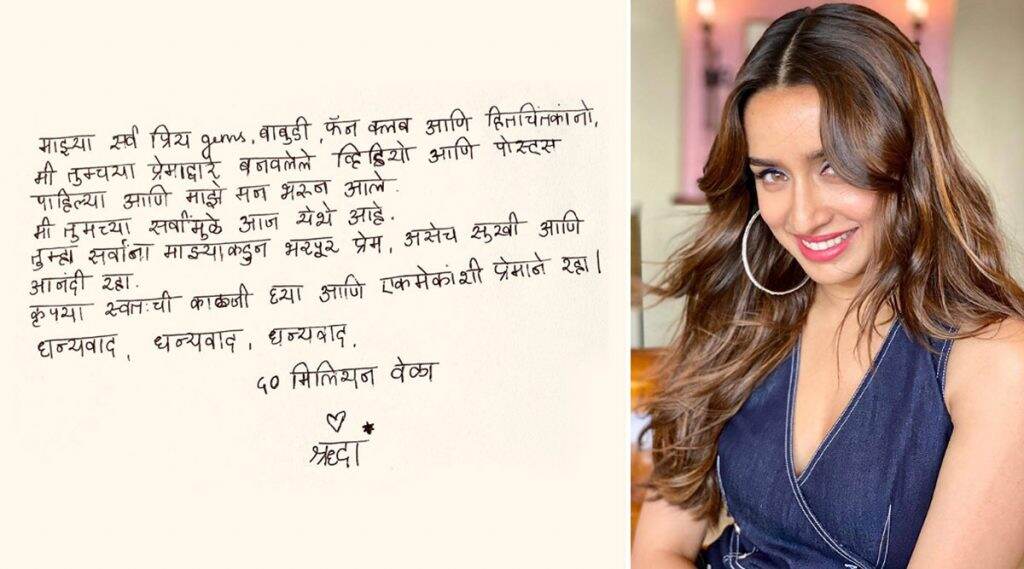 माझ्या सर्व प्रिय gems, बाबुडी, फॅन क्लब आणि हितचिंतकांनो,
मी तुमच्या प्रेमाद्वारे बनवलेले व्हिडियो आणि पोस्ट्स
पाहिल्या आणि माझे मन भरून आले.
मी तुमच्या सर्वांमुळे आज येथे आहे.
तुम्हा सर्वांना माझ्याकडुन भरपूर प्रेम, असेच सुखी आणि
आनंदी रहा.
कृपया स्वतःची काळजी घ्या आणि एकमेकांशी प्रेमाने रहा।
धन्यवाद, धन्यवाद, धन्यवाद.
५० मिलियन वेळा
श्रद्धा